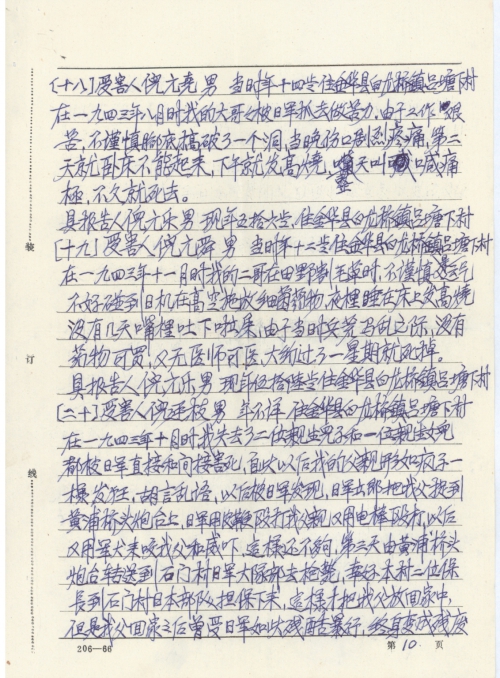 [十八]受害人倪亢尧 男 当时年十四岁住金华县白龙桥鎮吕塘下村
在一九四三年八月时我的大哥被日軍抓去做苦力,由于工作艰
苦,不谨慎脚底搞破了一个洞,当晚伤口剧烈疼痛,第二
天就卧床不能起来,下午就发高烧,天叫口喊痛
極,不久就死去。
具报告人倪亢乐 男 现年五拾六岁,住金华县白龙桥鎮吕塘下村
[十九]受害人倪亢舜 男 当时年十二岁住金华县白龙桥鎮吕塘下村
在一九四三年十一月时我的二哥在田野割毛草时,不谨慎运气
不好碰到日机在高空施放细菌药物,夜裡睡在床上发高烧
没有几天嘴裡吐下啦屎,由于当时兵荒马乱之际,没有
药物可買,又无医师可医,大约过了一星期就死掉。
具报告人倪亢乐 男 现年伍拾陆岁住金华县白龙桥鎮吕塘下村
[二十]受害人倪连枝 男 年不详 住金华县白龙桥鎮吕塘下村
在一九四三年十月时我失去了二位親生兒子和一位親生女兒
都被日軍直接和间接害死,因此以后我的父親形如疯子一
樣发狂,胡言乱语,以后被日軍发现,日軍出那把我父投到
黄浦桥头炮台上,日軍用皮鞭毆打我父親,又用电棒毆打,以后
又用军犬来咬我父和威吓,這樣还不夠,第二天由黄浦桥头
炮台转送到石门村日軍大隊部去枪斃,幸好本村二位保
長到石门村日本部队担保下来,這樣才把我父放回家中,
但是我父回家之后曾受日軍如此残酷暴行,终身变成残废
装
订
线
206—66
第 10. 页